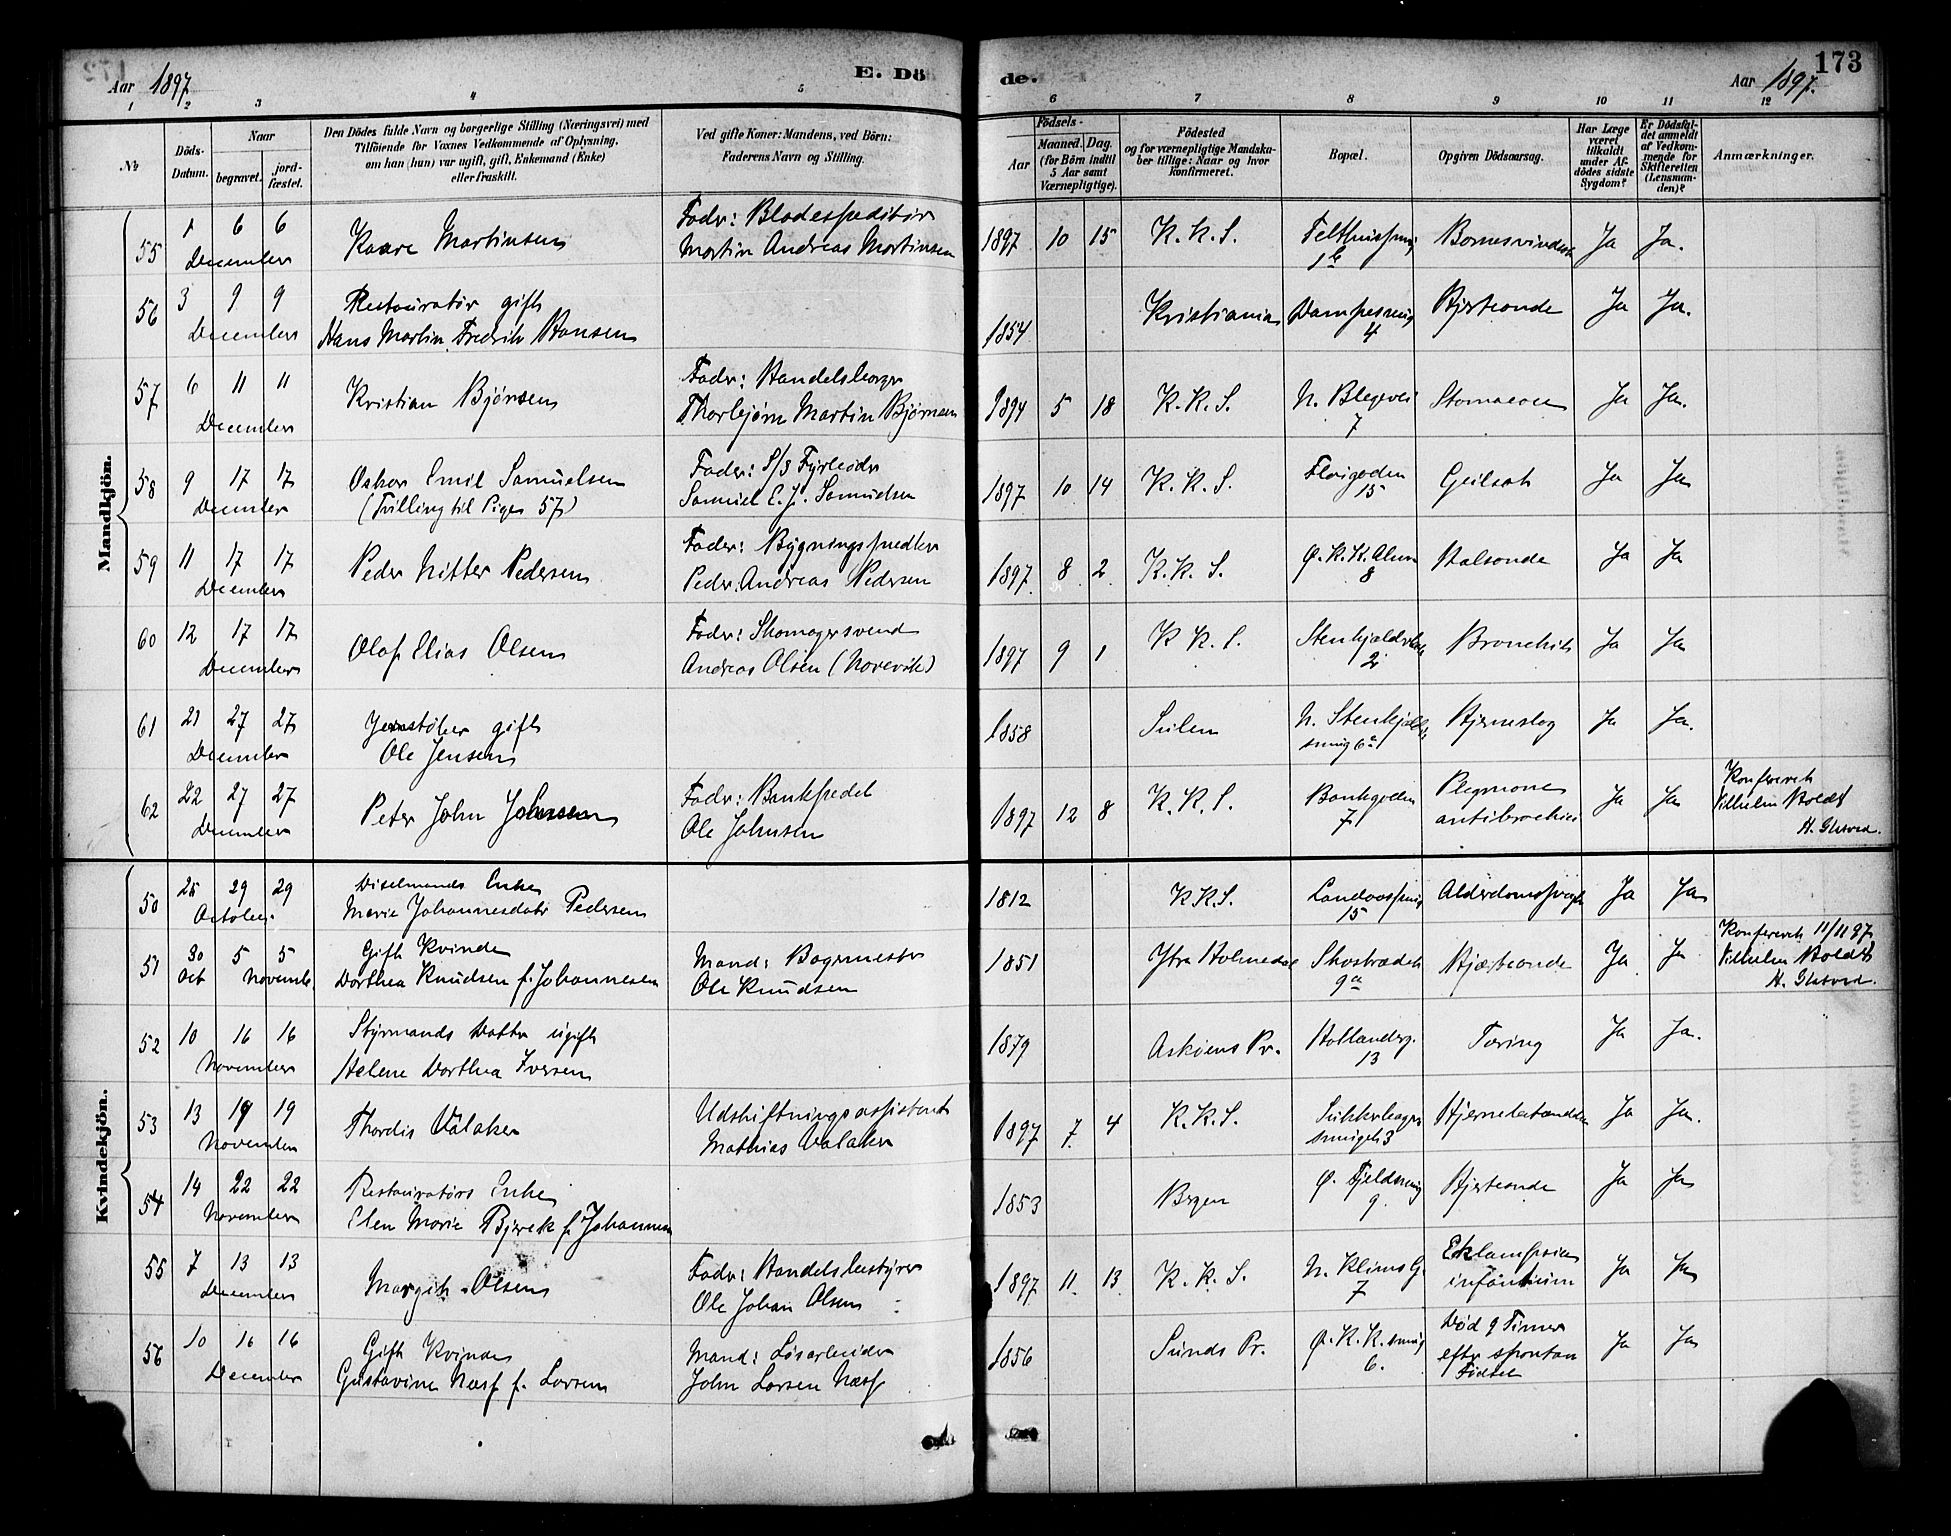 173
Aar 1897 E. Döde. Aar 1897.
1 2 3 4 5 6 7 8 9 10 11 12
No.
Döds-Datum.
Naar begravet. jord-fæstet.
Den Dödes fulde Navn og borgerlige Stilling (Næringsvei) med
Tilföiende for Voxnes Vedkommende af Oplysning,
om han (hun) var ugift, gift, Enkemand (Enke)
eller fraskilt.
Ved gifte Koner: Mandens, ved Börn:
Faderens Navn og Stilling.
Födsels-
Aar Maaned. Dag.
(for Börn indtil
5 Aar samt
Værnepligtige).
Födested
og for værnepligtige Mandska-
ber tillige: Naar og hvor
konfirmeret.
Bopæl.
Opgiven Dödsaarsag.
Har Læge
været
tilkaldt
under Af-
dödes sidste
Sygdom?
Er Dödsfal-
det anmeldt
af Vedkom-
mende for
Skifteretten
(Lensman-
den)?
Anmærkninger.
Mandkjön.
55 1 6 6 December Kaare Martinsen Fader: Bladexpeditør Martin Andreas Martinsen 1897 10 15 K. K. S. 1b Ja Ja.
56 3 9 9 December Restauratør gift Hans Martin Fredrik Hansen 1854 Kristiania 4 Hjerteonde Ja Ja.
57 6 11 11 December Kristian Bjørnsen Fader: Handelsborger Thorbjørn Martin Bjørnsen 1894 5 18 K. K. S. N. Blegevei 7 Ja Ja.
58 9 17 17 December Oskar Emil Samuelsen (Tvilling til Pige 57) Fader: S/S Fyrbøder Samuel E. J. Samuelsen 1897 10 14 K. K. S. 15 Ja Ja
59 11 17 17 December Peder Nitter Pedersen Fader: Peder Andreas Pedersen 1897 8 2 K. K. S. Ø. K. K. Alm 8 Halsonde Ja Ja
60 12 17 17 December Olaf Elias Olsen Fader: Skomagersvend Andreas Olsen (Norevik) 1897 9 1 K K. S. 2 Bronchit Ja Ja
61 21 27 27 December Jernstøber gift Ole Jensen 1858 Sulen N. Stenkjelder smug 6a Hjerneslag Ja Ja.
62 22 27 27 December Peter John Johnsen Fader: Bankbud Ole Johnsen 1897 12 8 K. K. S. Bankgaden 7 Flegmone antibrachii Ja Ja Konfereret Vilhelm Boldt
Kvindekjön.
50 25 29 29 October Enke Marie Johannesdatr Pedersen 1812 K. K. S. Landaassmug 15 Alderdomssvagh Ja Ja
51 30 Oct 5 5 Novemb. Gift Kvinde Dorthea Knudsen f. Johannesen Mand: Bagermester Ole Knudsen 1851 Ytre Holmedal Skostrædet 9a Hjerteonde Ja Ja Konfereret 11/11 97 Vilhelm Boldt
52 10 16 16 November Styrmands Datter ugift Helene Dorthea Iversen 1879 Askøens Pr. Hollanderg. 13 Tæring Ja Ja.
53 13 19 19 November Thordis Valaker Udskiftningsassistent Mathias Valaker 1897 7 4 K. K. S. Sukkerhagen smuget 3 Hjernebetændelse Ja Ja.
54 14 22 22 November Restauratørs Enke Elen Marie Bjerck f. Johannesen 1853 Bergen Ø. Fjeldsmug 9 Hjerteonde Ja Ja
55 7 13 13 December Margit Olsen Fader: Handelsbestyrer Ole Johan Olsen 1897 11 13 K. K. S. N. Klims G. 7 Eklampsia infantium Ja Ja
56 10 16 16 December Gift Kvinde Gustavine Næss f. Larsen Mand: Løsarbeider John Larsen Næss 1856 Sunds Pr. Ø. K. K. smug 6. Død 9 Timer efter spontan Fødsel Ja Ja